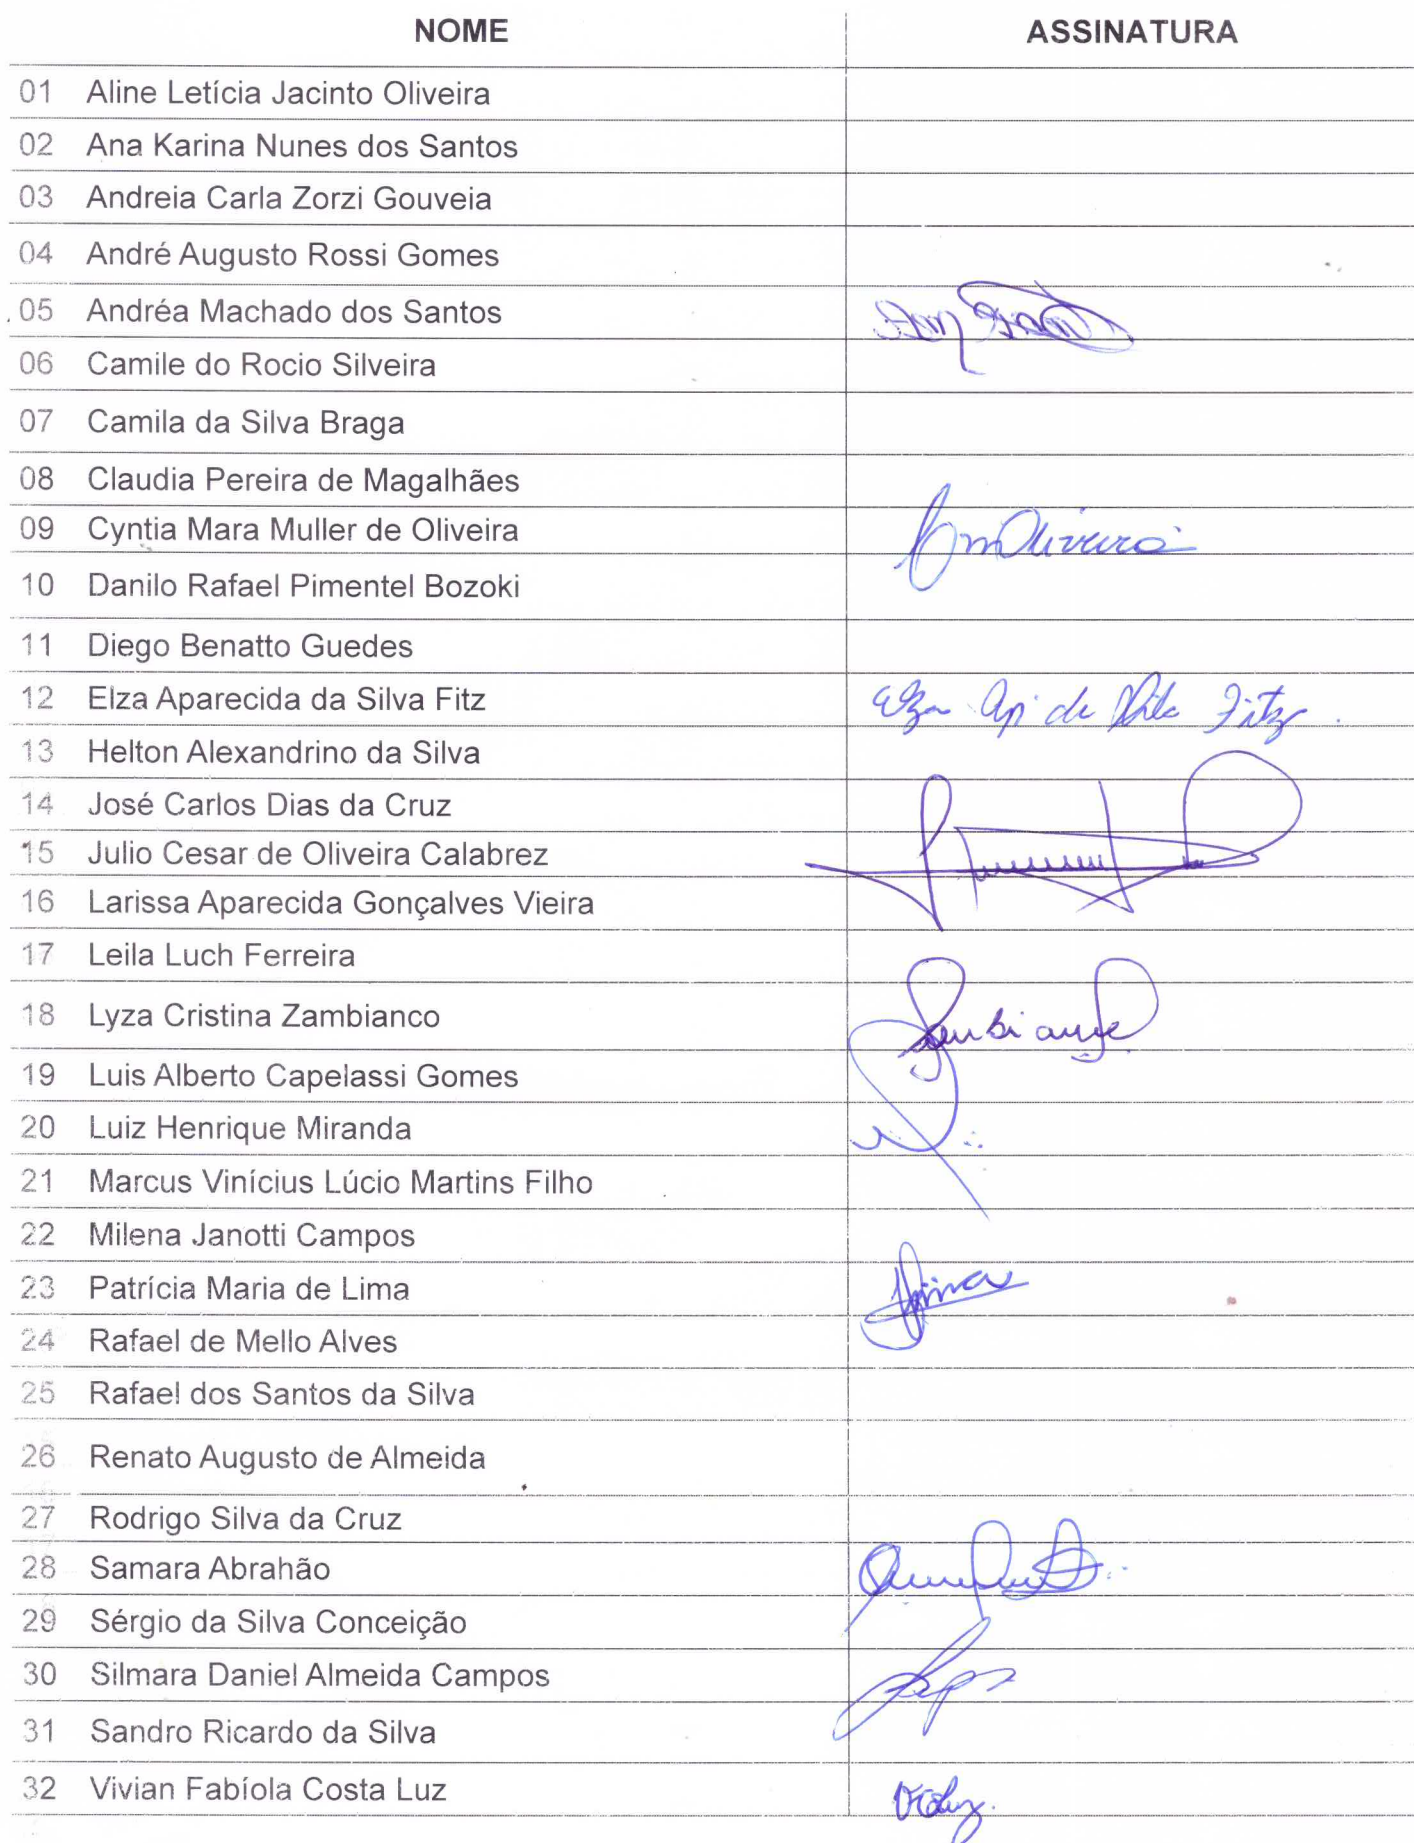 NOME ASSINATURA
01 Aline Letícia Jacinto Oliveira
02 Ana Karina Nunes dos Santos
03 Andreia Carla Zorzi Gouveia
04 André Augusto Rossi Gomes
05 Andréa Machado dos Santos
06 Camile do Rocio Silveira
07 Camila da Silva Braga
08 Claudia Pereira de Magalhães
09 Cyntia Mara Muller de Oliveira CmOliveira
10 Danilo Rafael Pimentel Bozoki
11 Diego Benatto Guedes
12 Elza Aparecida da Silva Fitz Elza Ap. da Silva Fitz
13 Helton Alexandrino da Silva
14 José Carlos Dias da Cruz
15 Julio Cesar de Oliveira Calabrez
16 Larissa Aparecida Gonçalves Vieira
17 Leila Luch Ferreira
18 Lyza Cristina Zambianco
19 Luis Alberto Capelassi Gomes
20 Luiz Henrique Miranda
21 Marcus Vinícius Lúcio Martins Filho
22 Milena Janotti Campos
23 Patrícia Maria de Lima
24 Rafael de Mello Alves
25 Rafael dos Santos da Silva
26 Renato Augusto de Almeida
27 Rodrigo Silva da Cruz
28 Samara Abrahão
29 Sérgio da Silva Conceição
30 Silmara Daniel Almeida Campos
31 Sandro Ricardo da Silva
32 Vivian Fabíola Costa Luz